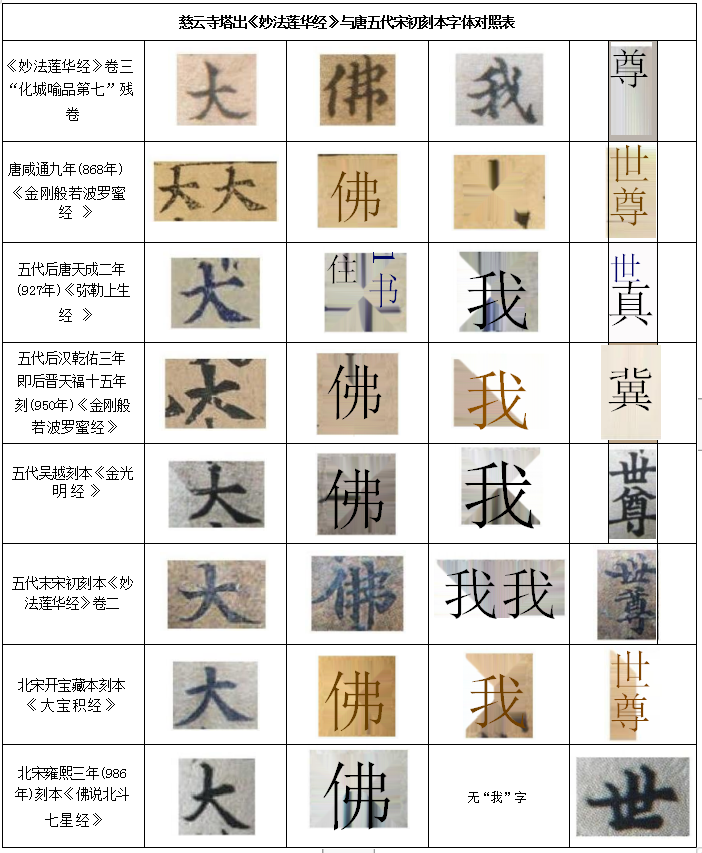 慈云寺塔出《妙法莲华经》与唐五代宋初刻本字体对照表
《妙法莲华经》卷三
“化城喻品第七”残
卷
大
佛
我
尊
唐咸通九年(868年)
《金刚般若波罗蜜
经 》
大大
佛
世
尊
五代后唐天成二年
(927年)《弥勒上生
经 》
大
住
书
我
世
真
五代后汉乾佑三年
即后晋天福十五年
刻(950年)《金刚般
若波罗蜜经》
大
佛
我
冀
五代吴越刻本《金光
明经 》
大
佛
我
世
尊
五代末宋初刻本《妙
法莲华经》卷二
大
佛
我我
世
尊
北宋开宝藏本刻本
《大宝积经》
大
佛
我
世
尊
北宋雍熙三年(986
年)刻本《佛说北斗
七星经》
大
佛
无“我”字
世